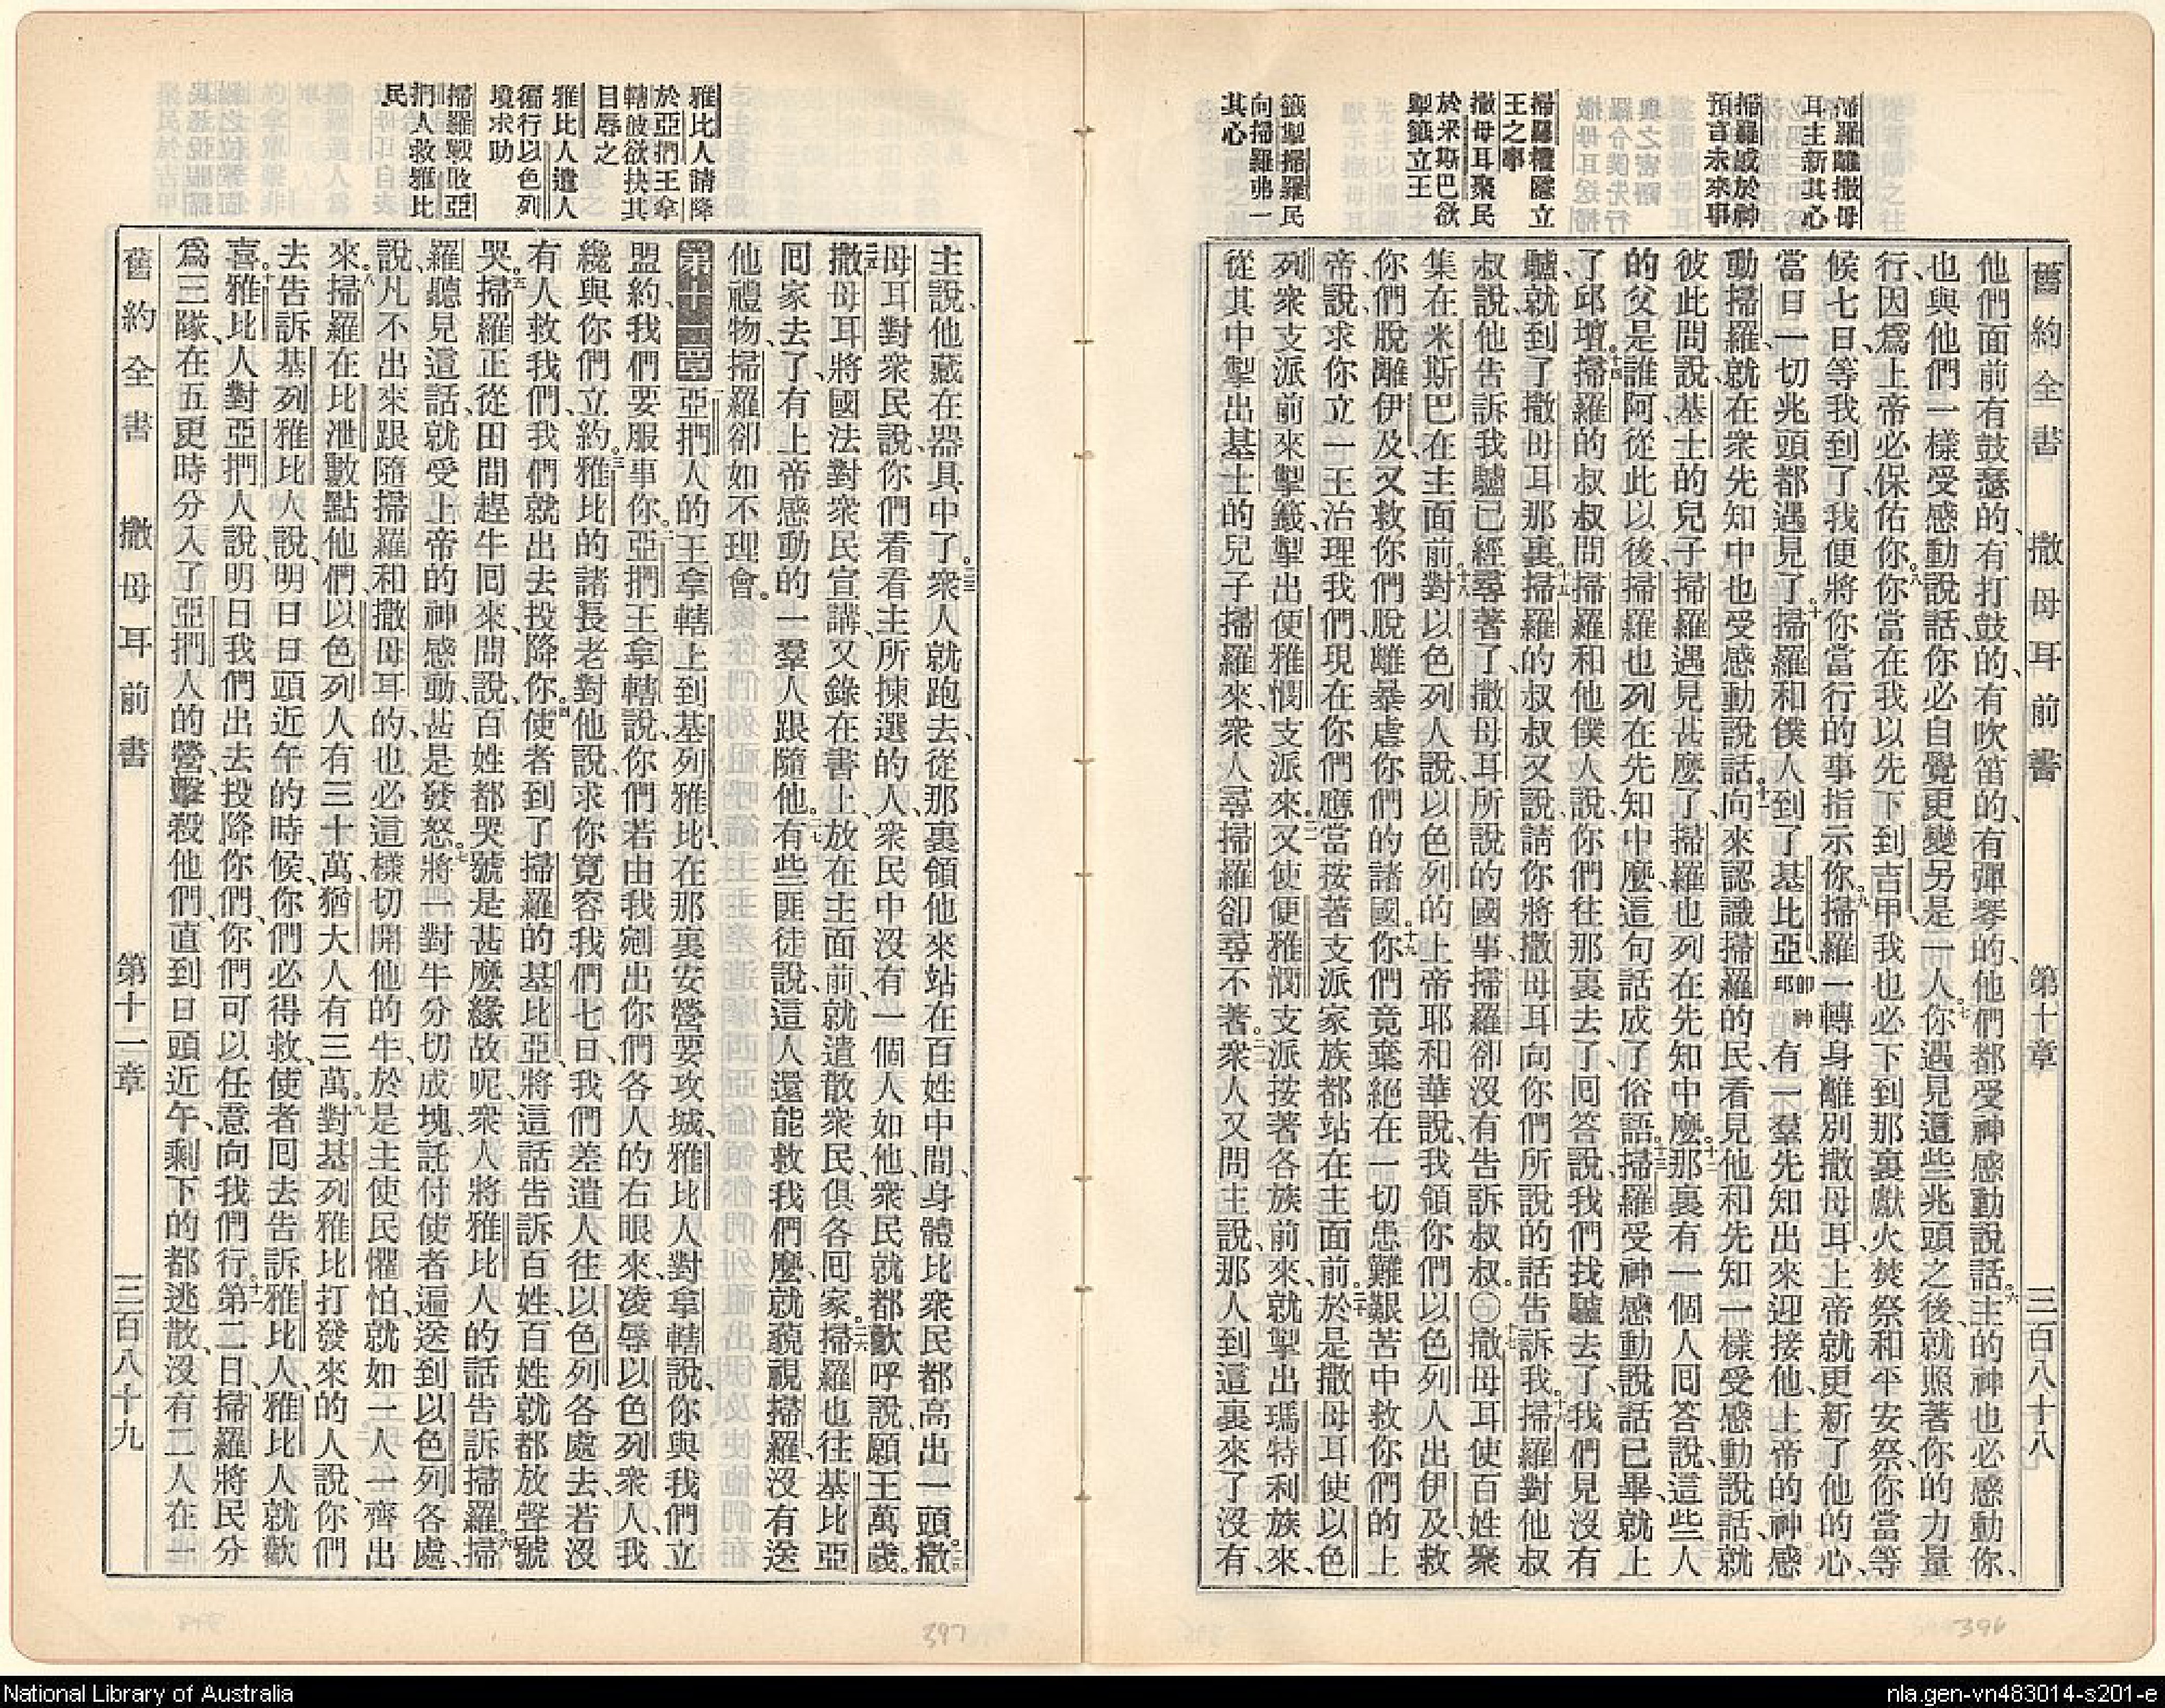 舊約全書 撒母耳前書 第十章 三百八十八
掃羅離撒母
耳主新其心
掃羅感於神
預言未來事
掃羅禮隱立
王之事
撒母耳聚民
於米斯巴欲
掣籤立王
籤掣掃羅民
向掃羅弗一
其心
他們面前有鼓瑟的、有打鼓的、有吹笛的、有彈琴的、他們都受神感動說話。六主的神也必感動你、
也與他們一樣受感動說話、你必自覺更變另是一人。七你遇見這些兆頭之後、就照著你的力量
行、因爲上帝必保佑你。八你當在我以先下到吉甲、我也必下到那裏獻火焚祭和平安祭、你當等
候七日、等我到了、我便將你當行的事指示你。九掃羅一轉身離別撒母耳、上帝就更新了他的心、
當日一切兆頭都遇見了。十掃羅和僕人到了基比亞卽神邱有一羣先知出來迎接他、上帝的神感
動掃羅、就在衆先知中也受感動說話。十一向來認識掃羅的民、看見他和先知一樣受感動說話、就
彼此問說、基士的兒子掃羅遇見甚麼了、掃羅也列在先知中麼。十二那裏有一個人回答說、這些人
的父是誰阿、從此以後、掃羅也列在先知中麼、這句話成了俗語。十三掃羅受神感動說話已畢、就上
了邱壇。十四掃羅的叔叔問掃羅和他僕人說、你們往那裏去了、回答說、我們找驢去了、我們見沒有
驢、就到了撒母耳那裏。十五掃羅的叔叔又說、請你將撒母耳向你們所說的話告訴我。十六掃羅對他叔
叔說、他告訴我驢已經尋著了、撒母耳所說的國事、掃羅卻沒有告訴叔叔。〇十七撒母耳使百姓聚
集在米斯巴、在主面前。十八對以色列人說、以色列的上帝耶和華說、我領你們以色列人出伊及、救
你們脫離伊及、又救你們脫離暴虐你們的諸國。十九你們竟棄絕在一切患難艱苦中救你們的上
帝、說、求你立一王治理我們、現在你們應當按著支派家族都站在主面前。二十於是撒母耳使以色
列衆支派前來掣籤、掣出便雅憫支派來。二一又使便雅憫支派按著各族前來、就掣出瑪特利族來、
從其中掣出基士的兒子掃羅來、衆人尋掃羅卻尋不著。二二衆人又問主說、那人到這裏來了沒有、
396
雅比人請降
於亞捫王拿
轄彼欲抉其
目辱之
雅比人遣人
徧行以色列
境求助
掃羅戰敗亞
捫人救雅比
民
主說、他藏在器具中了。二三衆人就跑去、從那裏領他來、站在百姓中間、身體比衆民都高出一頭。二四撒
母耳對衆民說、你們看看主所揀選的人、衆民中沒有一個人如他、衆民就都歡呼說、願王萬歲。
二五撒母耳將國法對衆民宣講、又錄在書上、放在主面前、就遣散衆民、俱各回家。二六掃羅也往基比亞
回家去了、有上帝感動的一羣人跟隨他。二七有些匪徒說、這人還能救我們麼、就藐視掃羅、沒有送
他禮物、掃羅卻如不理會。
第十一章 亞捫人的王拿轄上到基列雅比、在那裏安營要攻城、雅比人對拿轄說、你與我們立
盟約、我們要服事你。二亞捫王拿轄說、你們若由我剜出你們各人的右眼來、凌辱以色列衆人、我
纔與你們立約。三雅比的諸長老對他說、求你寬容我們七日、我們差遣人往以色列各處去、若沒
有人救我們、我們就出去投降你。四使者到了掃羅的基比亞、將這話告訴百姓、百姓就都放聲號
哭。五掃羅正從田間趕牛回來、問說、百姓都哭號是甚麼緣故呢、衆人將雅比人的話告訴掃羅。六掃
羅聽見這話、就受上帝的神感動、甚是發怒。七將一對牛分切成塊、託付使者遍送到以色列各處、
說、凡不出來跟隨掃羅和撒母耳的、也必這樣切開他的牛、於是主使民懼怕、就如一人一齊出
來。八掃羅在比泄數點他們、以色列人有三十萬、猶大人有三萬。九對基列雅比打發來的人說、你們
去告訴基列雅比人說、明日日頭近午的時候、你們必得救、使者回去告訴雅比人、雅比人就歡
喜。十雅比人對亞捫人說、明日我們出去投降你們、你們可以任意向我們行。十一第二日、掃羅將民分
爲三隊、在五更時分入了亞捫人的營、擊殺他們、直到日頭近午、剩下的都逃散、沒有二人在一
舊約全書 撒母耳前書 第十一章 三百八十九
397
National Library of Australia
nla.gen-vn483014-s201-e